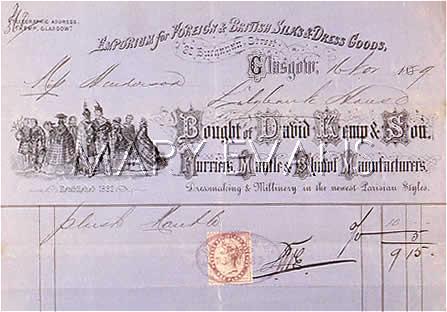 TELEGRAPHIC ADDRESS.
"KEMP, GLASGOW."
EMPORIUM for FOREIGN & BRITISH SILKS & DRESS GOODS,
37 Buchanan Street
Glasgow, 16 Nov 1889
Mrs Henderson
Lilybank House
Bought of David Kemp & Son,
Furriers, Mantle & Shawl Manufacturers,
Dressmaking & Millinery in the newest Parisian Styles.
Established 1832
MARY EVANS
plush Mantle
10
5
9 15